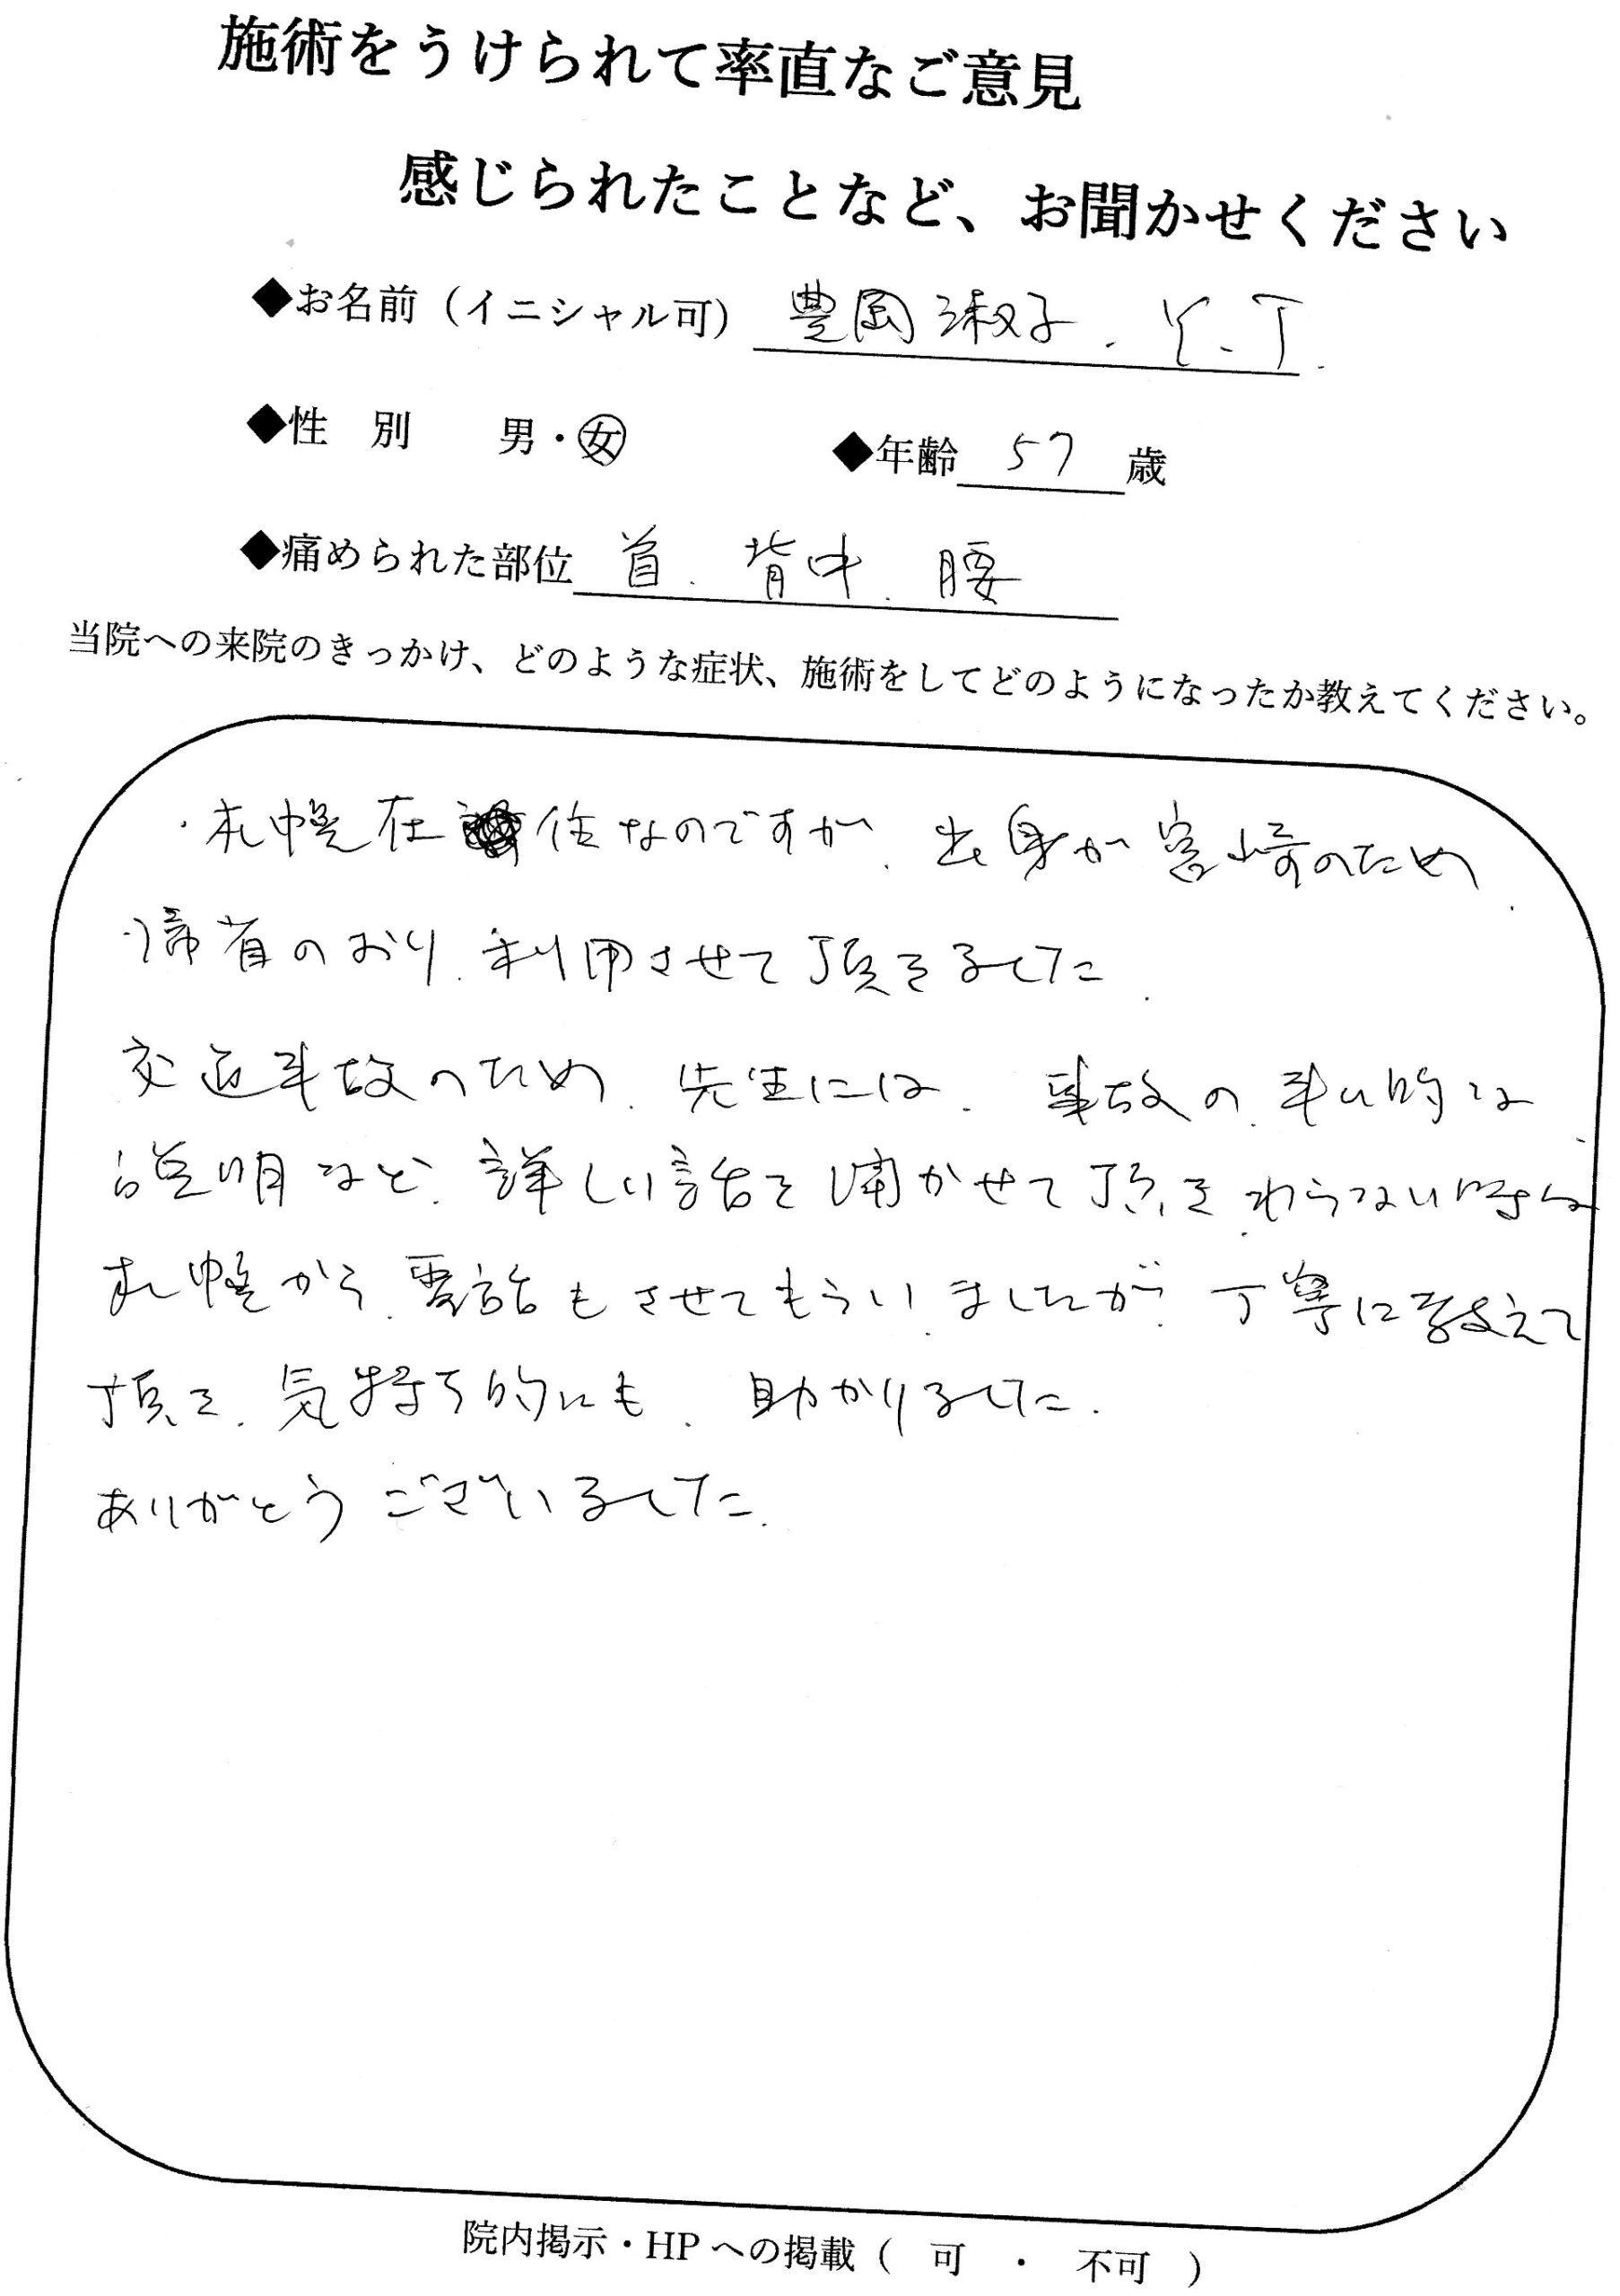 施術をうけられて率直なご意見
感じられたことなど、お聞かせください
◆お名前（イニシャル可） 豊岡淑子. Y.T.
◆性 別 男・女 ◆年齢 57 歳
◆痛められた部位 首. 背中. 腰
当院への来院のきっかけ、どのような症状、施術をしてどのようになったか教えてください。
・札幌在住なのですが. 出身が宮崎のため.
帰省のおり. 利用させて頂きました.
交通事故のため. 先生には. 事故の. 的な
説明など. 詳しい話を聞かせて頂き. わらない時は
札幌から. 電話もさせてもらいましたが. 丁寧に教えて
頂き. 気持ち的にも. 助かりました.
ありがとうございました.
院内掲示・HPへの掲載（ 可 ・ 不可 ）